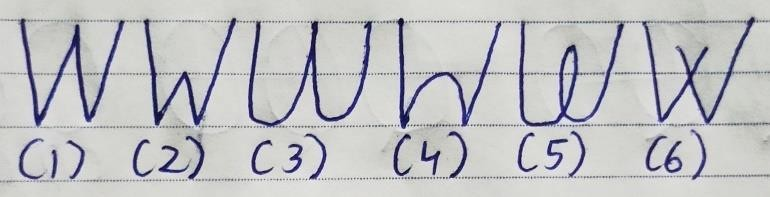 W W W W W W
(1) (2) (3) (4) (5) (6)